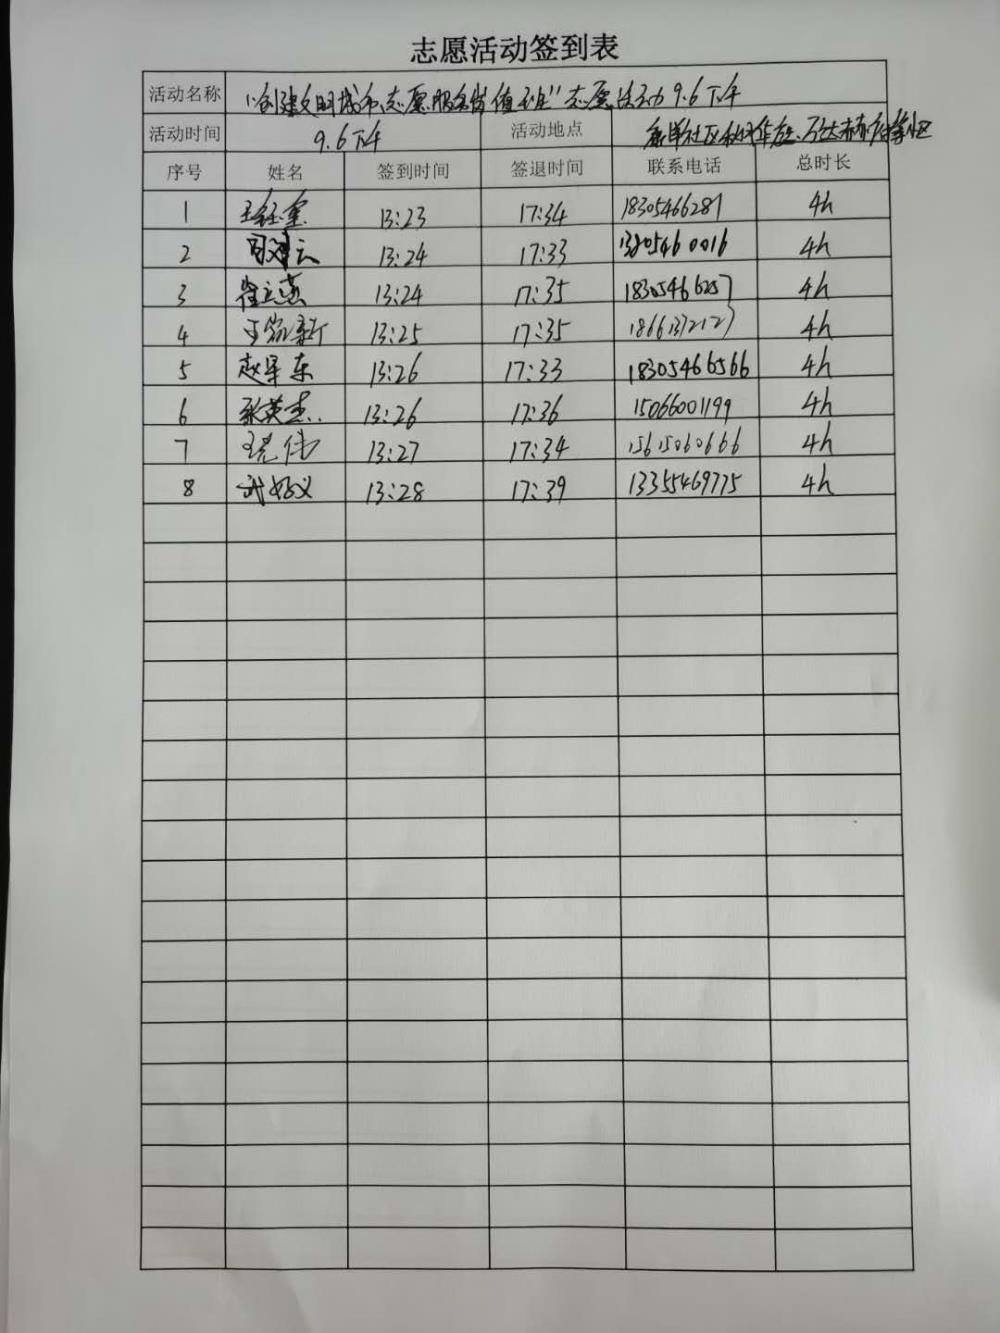 志愿活动签到表
活动名称 "创建文明城市,志愿服务岗值班"志愿活动9.6下午
活动时间 9.6下午 活动地点 社区
序号 姓名 签到时间 签退时间 联系电话 总时长
1 王钰奎 13:23 17:34 18305466281 4h
2 13:24 17:33 4h
3 崔云燕 13:24 17:35 18305466257 4h
4 13:25 17:35 18661372127 4h
5 赵军东 13:26 17:33 18305466566 4h
6 张英杰 13:26 17:36 15066001199 4h
7 王光伟 13:27 17:34 15615060666 4h
8 武好义 13:28 17:39 13355469775 4h